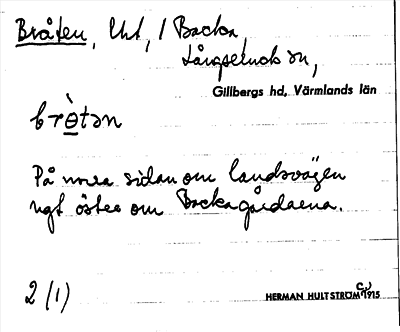 Bråten, Unt, / Backa,
Långserud sn,
Gillbergs hd, Värmlands län
brètən
På norra sidan om landsvägen
ngt öster om Backagårdarna.
2 (1)
HERMAN HULTSTRÖM 1915